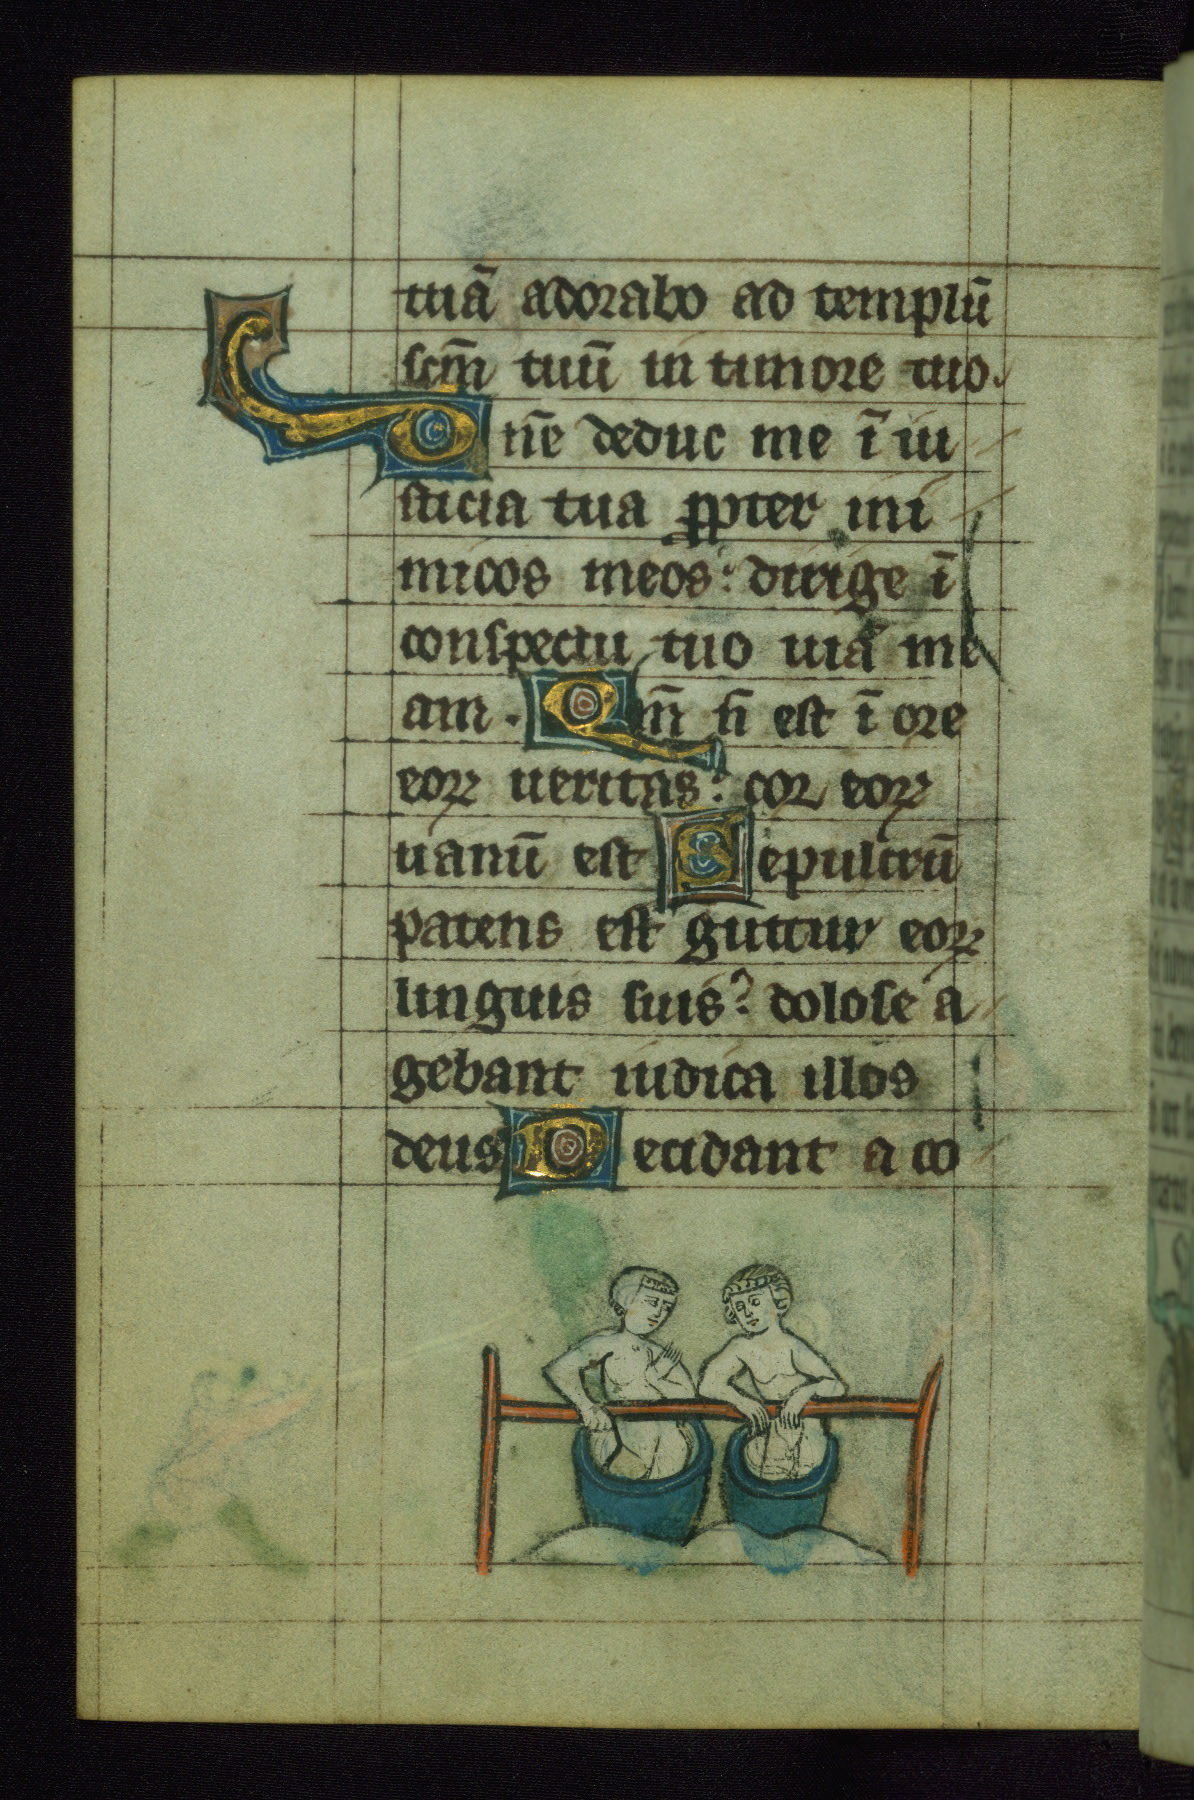 tuā adorabo ad templū
scm̄ tuū in timore tuo.
Dn̄e deduc me ī iu
sticia tua ꝓpter ini
micos meos: dirige ī
conspectu tuo uiā me
am. Qm̄ n̄ est ī ore
eoꝝ ueritas: cor eoꝝ
uanū est Sepulcrū
patens est guttur eoꝝ
linguis suis? dolose a
gebant iudica illos
deus Decidant a co